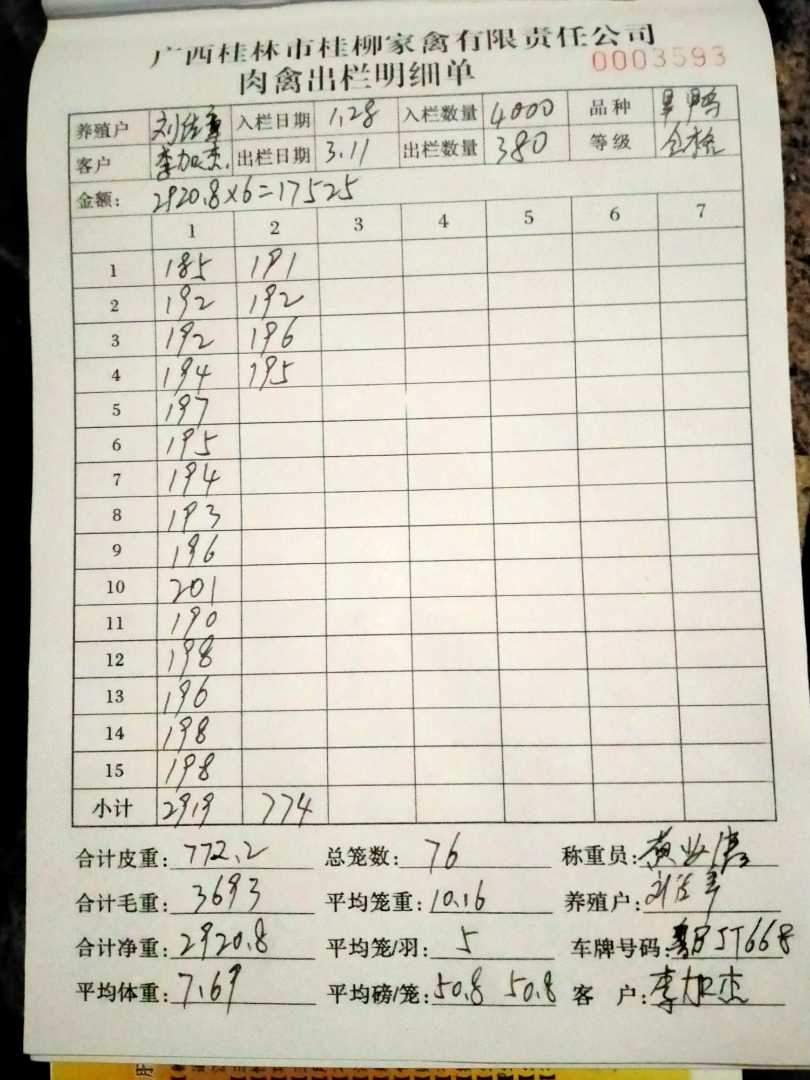 广西桂林市桂柳家禽有限责任公司
肉禽出栏明细单 0003593
养殖户 入栏日期 1.28 入栏数量 4000 品种
客户 李加杰 出栏日期 3.11 出栏数量 380 等级 合格
金额: 2920.8×6=17525
1 2 3 4 5 6 7
1 185 191
2 192 192
3 192 196
4 194 195
5 197
6 195
7 194
8 193
9 196
10 201
11 190
12 198
13 196
14 198
15 198
小计 2919 774
合计皮重: 772.2 总笼数: 76 称重员:
合计毛重: 3693 平均笼重: 10.16 养殖户:
合计净重: 2920.8 平均笼/羽: 5 车牌号码:
平均体重: 7.69 平均磅/笼: 50.8 50.8 客 户: 李加杰